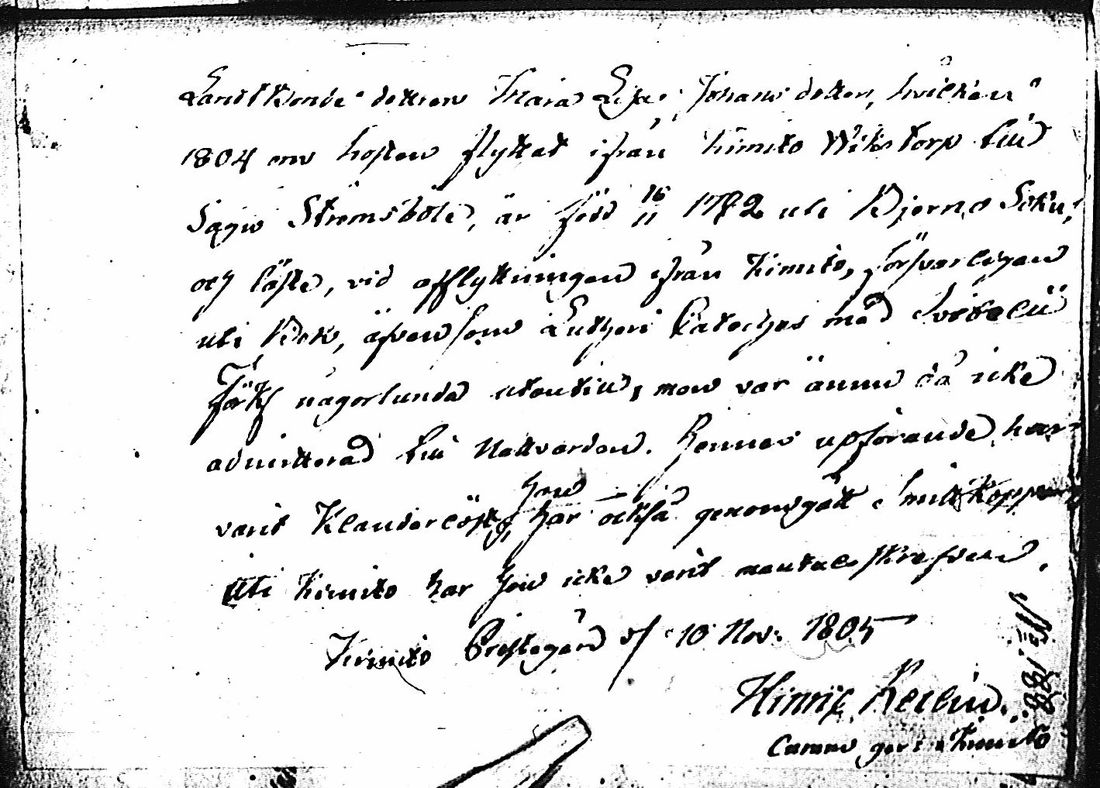 Landtbonde dottren Maria Lisa Johans dotter, hvilken
1804 om hösten flyttat ifrån Kimito Wikstorp till
Sagu Strömsböle, är född 16/11 1782 uti Bjerno Sokn,
och läste, vid afflyttningen ifrån Kimito, försvarligen
uti Bok, äfvensom Lutheri Cateches med Svebelii
Förkl någorlunda utantill, men var ännu då icke
admitterad till Nattvarden. Hennes upförande har
varit Klanderlöst, hon har också genomgått Smittkoppor
Uti Kimito har hon icke varit mantalsskrefven.
Kimito Prestegård d 10 Nov. 1805
Hinric
Comm i Kimito
N 188